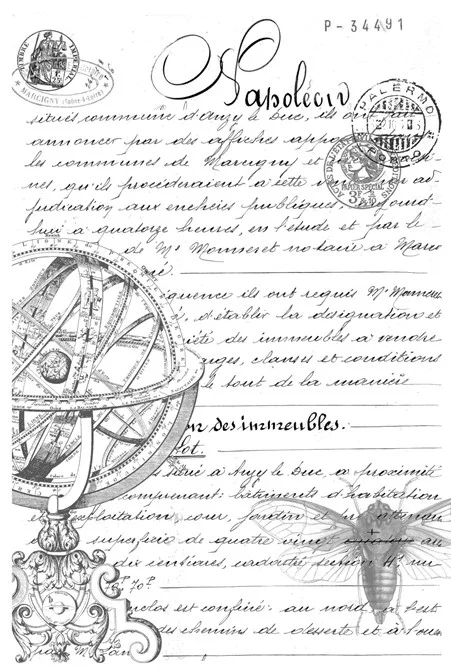 P-34491
TIMBRE IMPERIAL
MARCIGNY (Saône-&-Loire)
Napoléon
PALERMO
PORTO
situés commune d'Anzy le Duc, ils ont fait
annoncer par des affiches
les communes de Marcigny et
nes, qu'ils procéderaient à cette
judication aux enchères publiques,
hui à quatorze heures, en l'étude et par le
de Me Monseret notaire à Marci
PAPIER SPECIAL
équence ils ont requis Me
s, d'établir la désignation et
iété des immeubles à vendre
arges, clauses et conditions
le tout de la manière
on des immeubles.
lot.
située à Anzy le Duc, à proximité
comprenant: bâtiments d'habitation
et exploitation, cour, jardin et
superficie de quatre vingt
dix centiares, cadastré section H. nu
70P
enclos est confiné: au nord, à l'est
des chemins de desserte et à l'ou
par M.